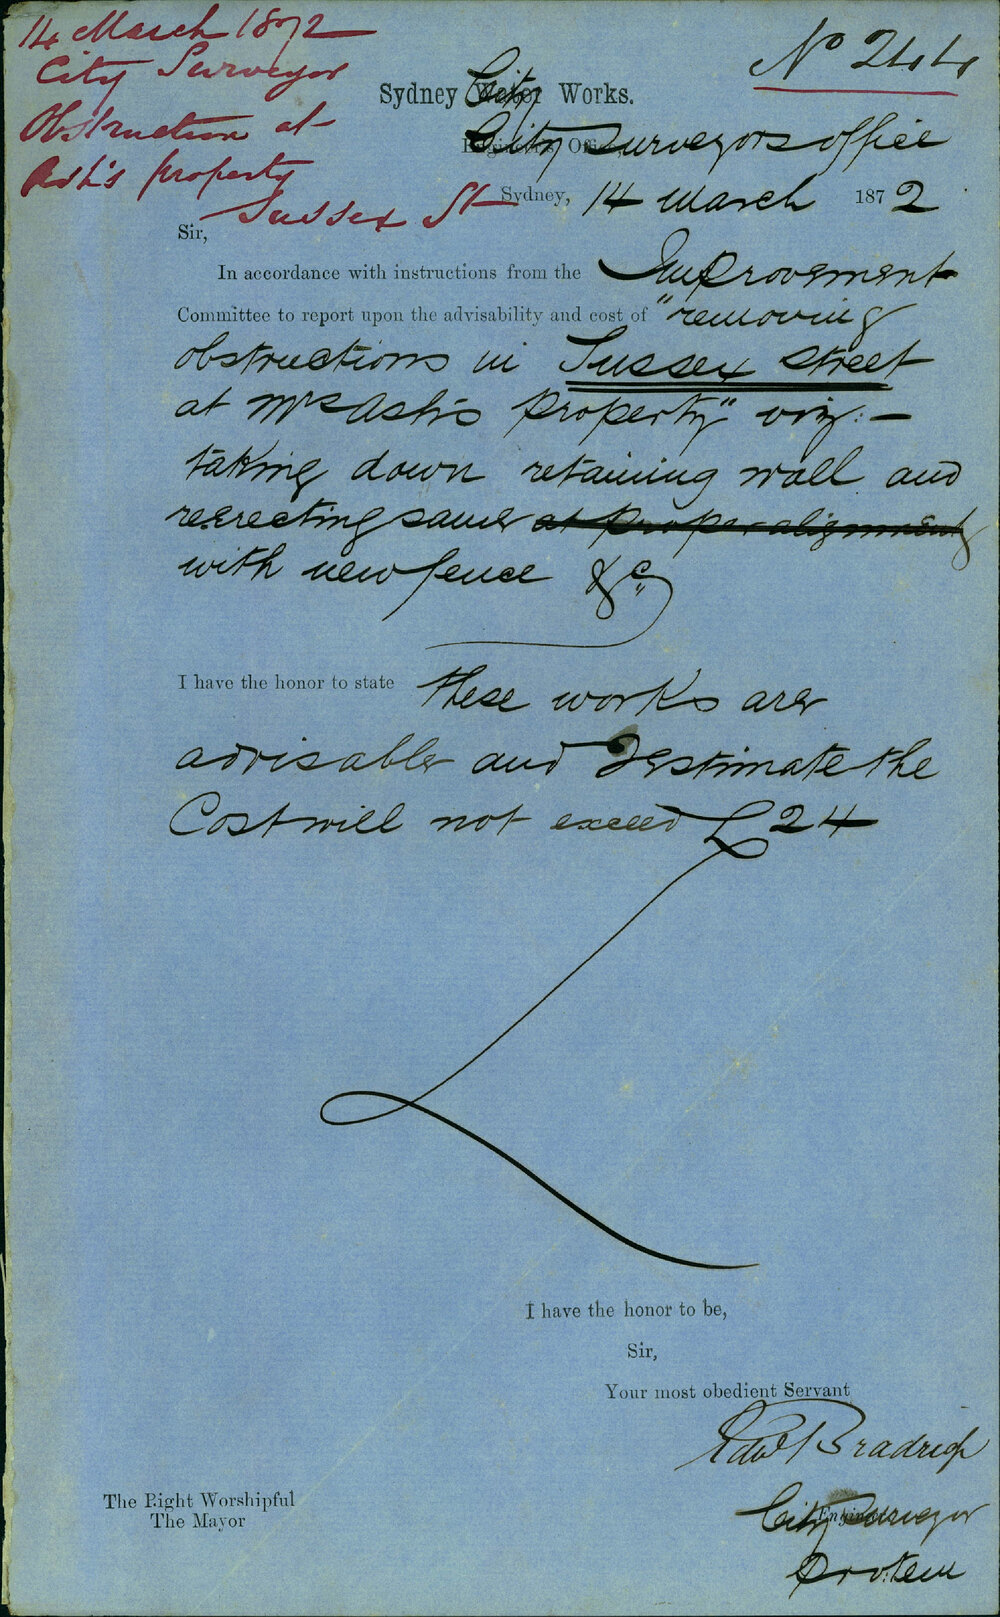 14 March 1872
City Surveyor
Obstruction at
Ash's property
Sussex St
No 244
Sydney City Works.
City Surveyors office
Sydney, 14 March 1872
Sir,
In accordance with instructions from the Improvement
Committee to report upon the advisability and cost of "removing
obstructions in Sussex Street
at Mrs Ash's property" viz: —
taking down retaining wall and
reerecting same at proper alignment
with new fence &c
I have the honor to state these works are
advisable and I estimate the
Cost will not exceed £24
I have the honor to be,
Sir,
Your most obedient Servant
Edwd Bradridge
City Surveyor
Pro: tem
The Right Worshipful
The Mayor